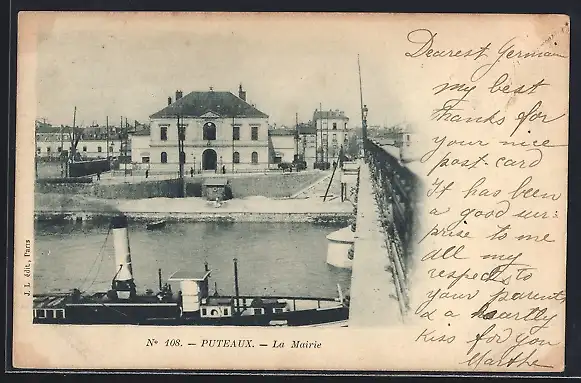 Dearest Germaine
my best
thanks for
your nice
post-card
It has been
a good sur-
prise to me
all my
respects to
your parents
& a heartly
kiss for you
Marthe
J. L. édit., Paris
No 108. – PUTEAUX. – La Mairie